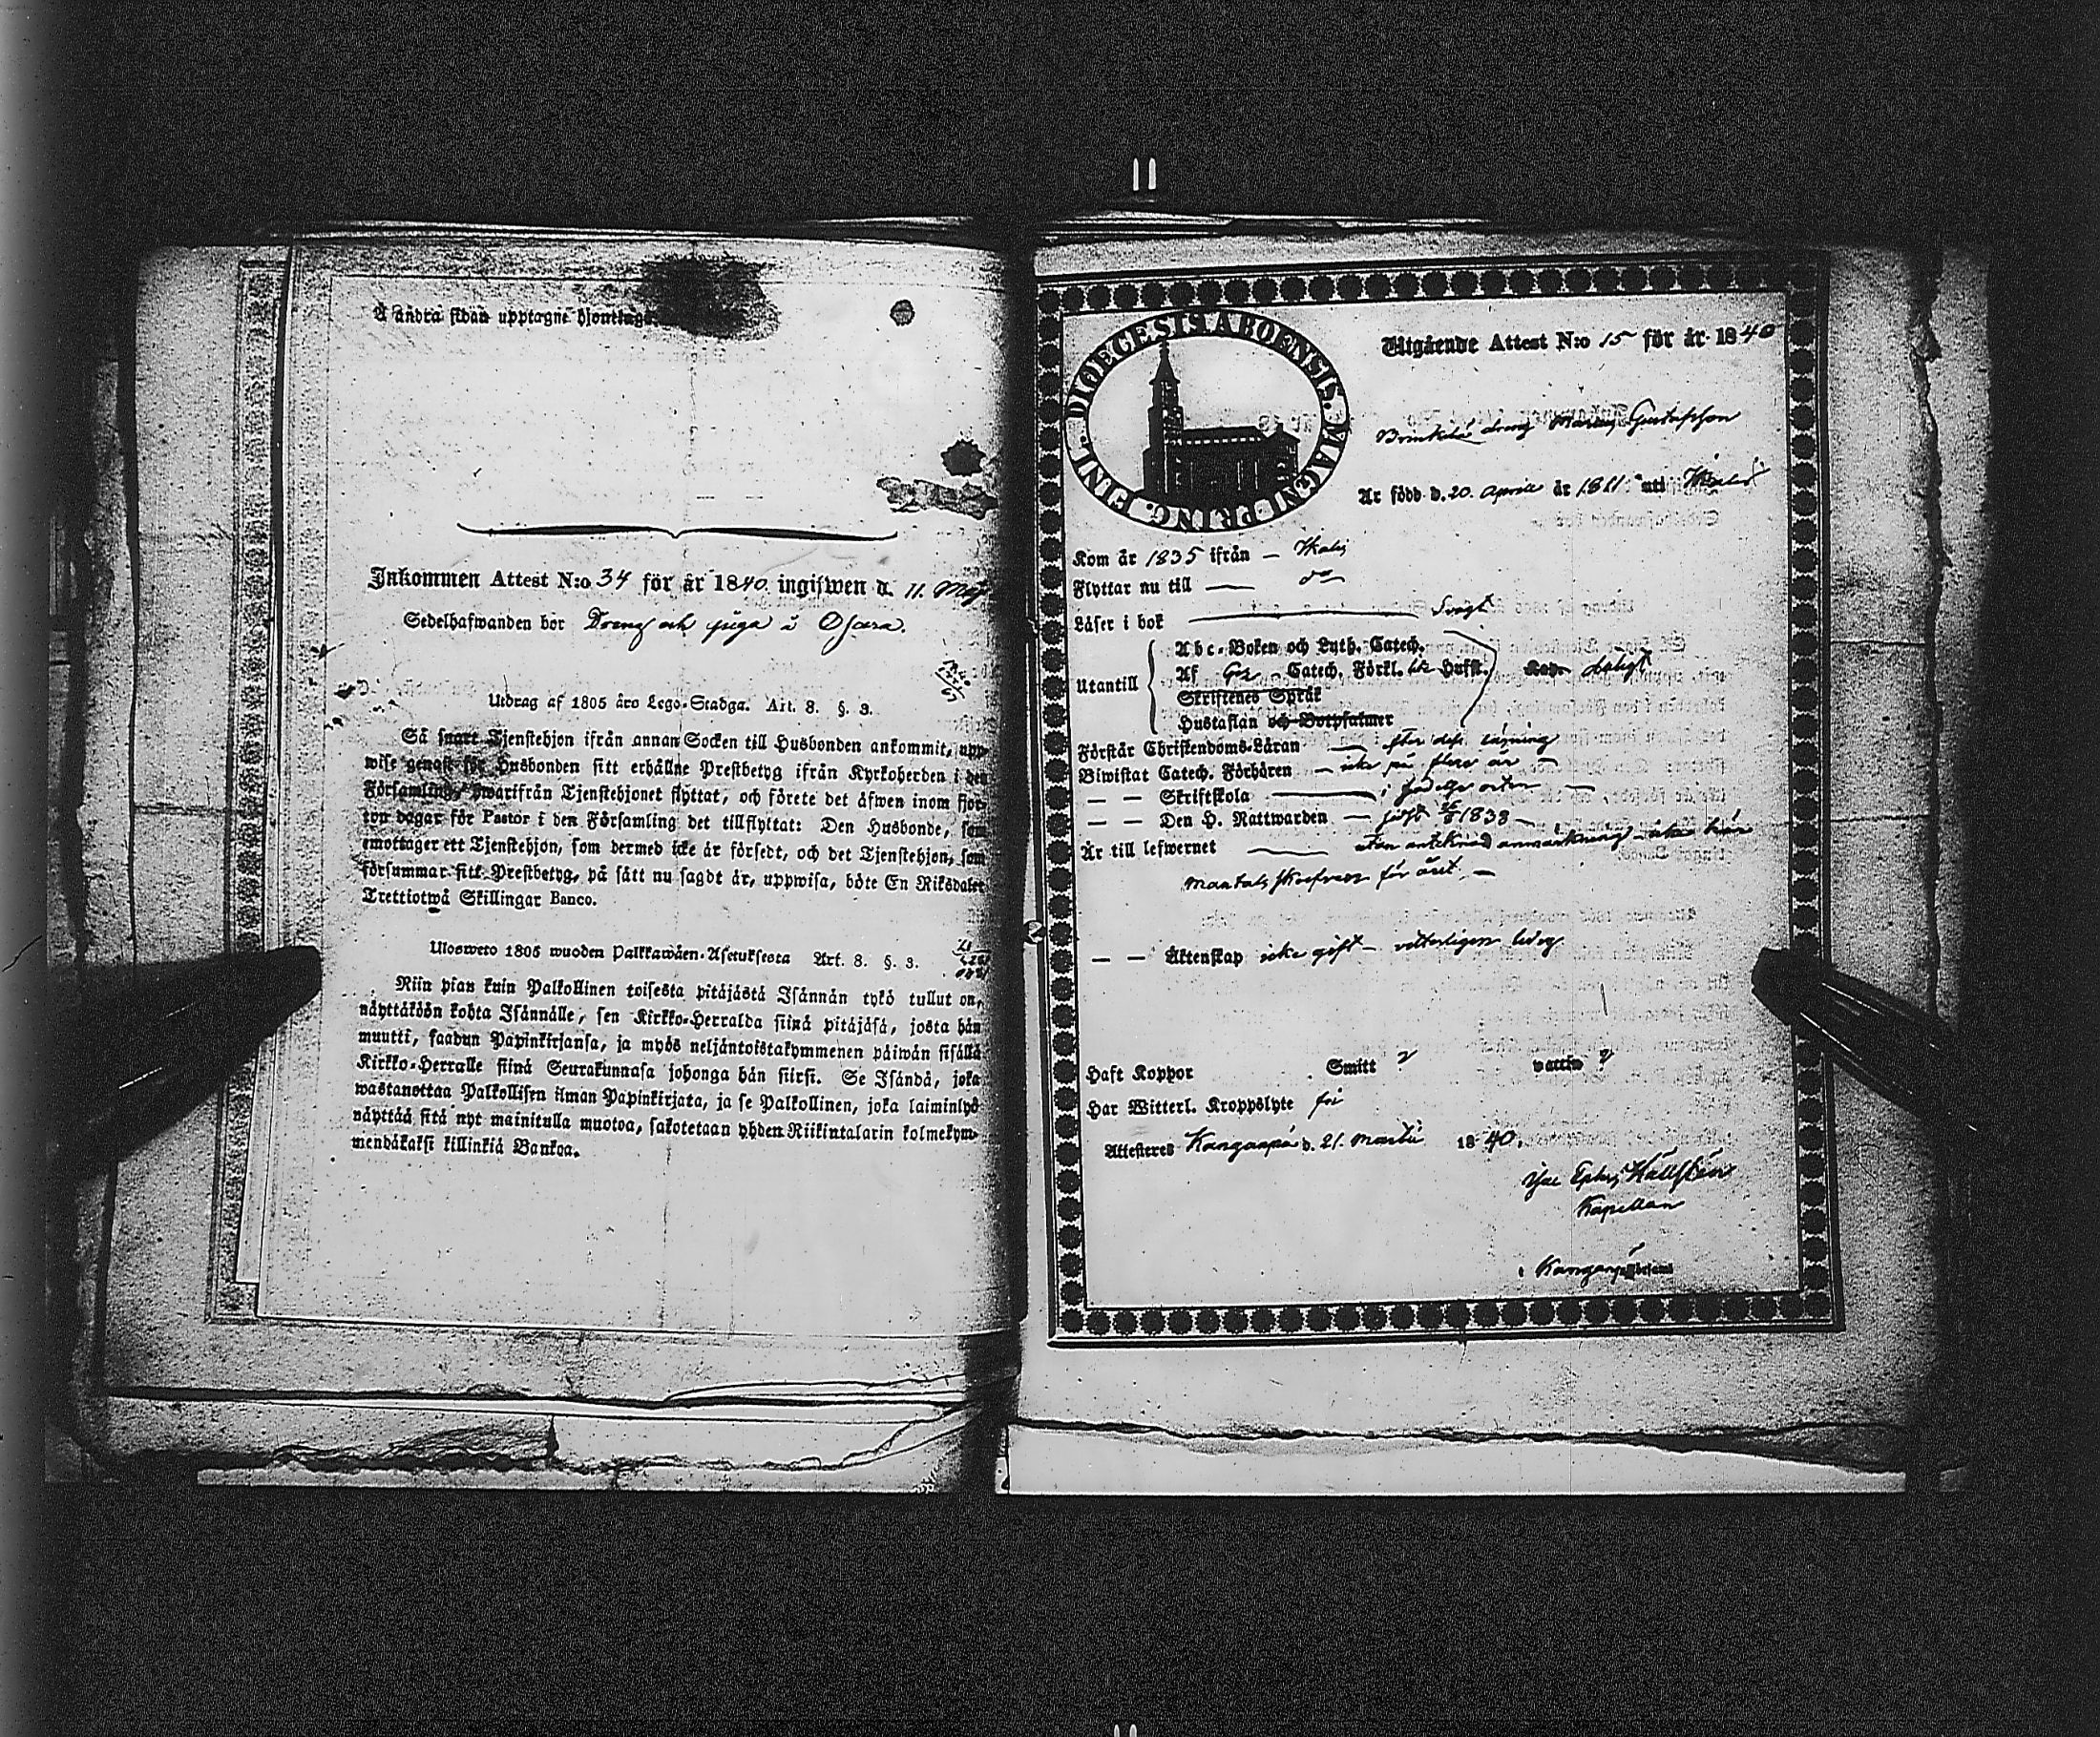 Å andra sidan upptagne hjontlags
Inkommen Attest N:o 34 för år 1840 ingifwen d. 11. Maj
Sedelhafwanden bor Dräng och piga å Ojara.
Utdrag af 1805 års Lego-Stadga. Art. 8. §. 3.
Så snart Tjenstehjon ifrån annan Socken till Husbonden ankommit, upp-
wise genast för Husbonden sitt erhållne Prestbetyg ifrån Kyrkoherden i den
Församling, hwarifrån Tjenstehjonet flyttat, och förete det äfwen inom fjor-
ton dagar för Pastor i den Församling det tillflyttat: Den Husbonde, som
emottager ett Tjenstehjon, som dermed icke är försedt, och det Tjenstehjon, som
försummar sitt Prestbetyg, på sätt nu sagdt är, uppwisa, böte En Riksdaler
Trettiotwå Skillingar Banco.
Ulosweto 1805 wuoden Palkkawäen-Asetuksesta Art. 8. §. 3.
Niin pian kuin Palkollinen toisesta pitäjästä Isännän tykö tullut on,
näyttäköön kohta Isännälle, sen Kirkko-Herralda siinä pitäjäsä, josta hän
muutti, saadun Papinkirjansa, ja myös neljäntoistakymmenen päiwän sisällä
Kirkko-Herralle siinä Seurakunnasa johonga hän siirsi. Se Isändä, joka
wastanottaa Palkollisen ilman Papinkirjata, ja se Palkollinen, joka laiminlyö
näyttää sitä nyt mainitulla muotoa, sakotetaan yhden Riikintalarin kolmekym-
mendäkaksi killinkiä Bankoa.
DIOECESIS ABOENSIS. MAGNI PRINC. FINL.
Utgående Attest N:o 15 för år 1840
dreng Gustafsson
Är född d. 20. April år 1811 uti
Kom år 1835 ifrån —
Flyttar nu till — do
Läser i bok — Svagt
Utantill
Abc-Boken och Luth. Catech.
Af Catech. Förkl. Hufst.
Skriftenes Språk
Hustaflan och Botpsalmer
dåligt
Förstår Christendoms-Läran — efter dess läsning
Biwistat Catech. Förhören — icke på flere år —
— — Skriftskola — i födelse orten —
— — Den H. Nattwarden — 1838 —
Är till lefwernet — utan antecknad anmärkning
mantalsskrefven för året. —
— — Äktenskap icke gift — vetterligen ledig
Haft Koppor Smitt ? vaccin ?
Har Witterl. Kroppslyte fri
Attesteres Kangaspä d. 21. Martii 1840.
Hällsten
Kapellan